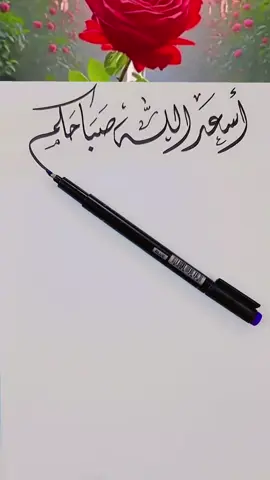 أَسعَدَ اللَّه صَبَاحَكم